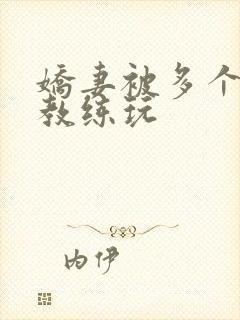 嬌妻被多个
教练玩
内伊